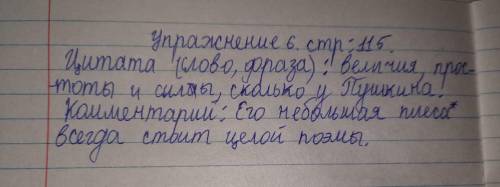 Упражнение 6. стр: 115.
Цитата (слово, фраза): величия, прос-
тоты и силы, сколько у Пушкина!
Комментарий: Его небольшая плеса
всегда стоит целой поэмы.